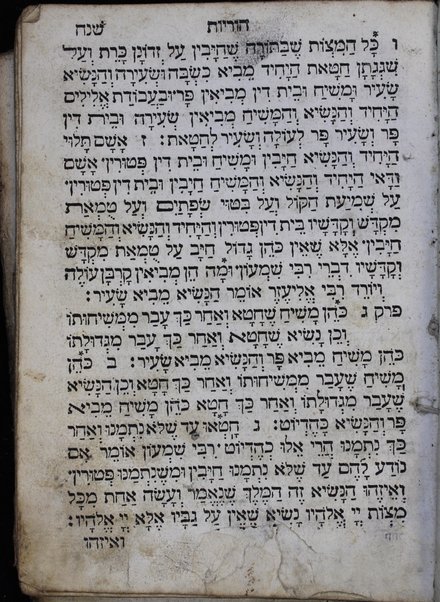 הוריות שנח
ו כָּל הַמִּצְוֹת שֶׁבַּתּוֹרָה שֶׁחַיָּבִין עַל זְדוֹנָן כָּרֵת וְעַל
שִׁגְגָתָן חַטָּאת הַיָּחִיד מֵבִיא כִּשְׂבָּה וּשְׂעִירָה וְהַנָּשִׂיא
שָׂעִיר וּמָשִׁיחַ וּבֵית דִּין מְבִיאִין פָּר׃ וּבַעֲבוֹדַת אֱלִילִים
הַיָּחִיד וְהַנָּשִׂיא וְהַמָּשִׁיחַ מְבִיאִין שְׂעִירָה וּבֵית דִּין
פָּר וְשָׂעִיר פָּר לְעוֹלָה וְשָׂעִיר לְחַטָּאת׃ ז אָשָׁם תָּלוּי
הַיָּחִיד וְהַנָּשִׂיא חַיָּבִין וּמָשִׁיחַ וּבֵית דִּין פְּטוּרִין׳ אָשָׁם
וַדַּאי הַיָּחִיד וְהַנָּשִׂיא וְהַמָּשִׁיחַ חַיָּבִין וּבֵית דִּין פְּטוּרִין׳
עַל שְׁמִיעַת הַקּוֹל וְעַל בִּטּוּי שְׂפָתַיִם וְעַל טֻמְאַת
מִקְדָּשׁ וְקָדָשָׁיו בֵּית דִּין פְּטוּרִין וְהַיָּחִיד וְהַנָּשִׂיא וְהַמָּשִׁיחַ
חַיָּבִין׳ אֶלָּא שֶׁאֵין כֹּהֵן גָּדוֹל חַיָּב עַל טֻמְאַת מִקְדָּשׁ
וְקָדָשָׁיו דִּבְרֵי רַבִּי שִׁמְעוֹן׳ וּמָה הֵן מְבִיאִין קָרְבָּן עוֹלֶה
וְיוֹרֵד רַבִּי אֱלִיעֶזֶר אוֹמֵר הַנָּשִׂיא מֵבִיא שָׂעִיר׃
פרק ג כֹּהֵן מָשִׁיחַ שֶׁחָטָא וְאַחַר כַּךְ עָבַר מִמְּשִׁיחוּתוֹ
וְכֵן נָשִׂיא שֶׁחָטָא וְאַחַר כַּךְ עָבַר מִגְּדוּלָתוֹ
כֹּהֵן מָשִׁיחַ מֵבִיא פָּר וְהַנָּשִׂיא מֵבִיא שָׂעִיר׃ ב כֹּהֵן
מָשִׁיחַ שֶׁעָבַר מִמְּשִׁיחוּתוֹ וְאַחַר כַּךְ חָטָא וְכֵן הַנָּשִׂיא
שֶׁעָבַר מִגְּדוּלָתוֹ וְאַחַר כַּךְ חָטָא כֹּהֵן מָשִׁיחַ מֵבִיא
פָּר וְהַנָּשִׂיא כְּהֶדְיוֹט׃ ג חָטְאוּ עַד שֶׁלֹּא נִתְמַנּוּ וְאַחַר
כַּךְ נִתְמַנּוּ הֲרֵי אֵלּוּ כְהֶדְיוֹט׳ רַבִּי שִׁמְעוֹן אוֹמֵר אִם
נוֹדַע לָהֶם עַד שֶׁלֹּא נִתְמַנּוּ חַיָּבִין וּמִשֶּׁנִּתְמַנּוּ פְּטוּרִין׳
וְאֵיזֶהוּ הַנָּשִׂיא זֶה הַמֶּלֶךְ שֶׁנֶּאֱמַר וְעָשָׂה אַחַת מִכָּל
מִצְוֹת יְיָ אֱלֹהָיו נָשִׂיא שֶׁאֵין עַל גַּבָּיו אֶלָּא יְיָ אֱלֹהָיו׃
ואיזהו